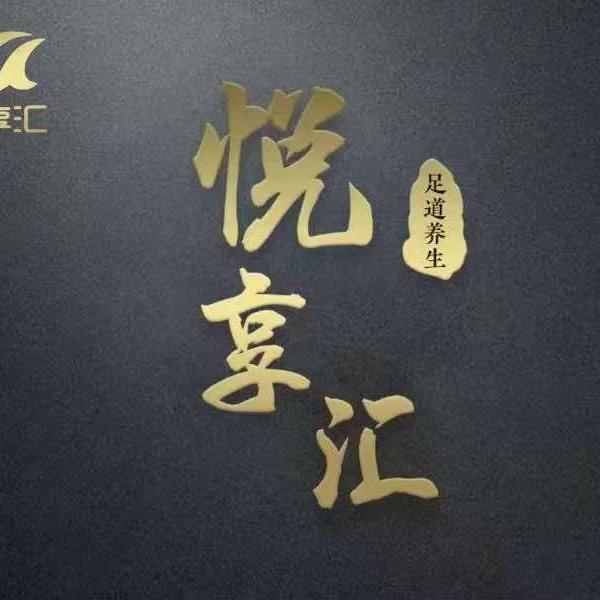 享汇
悦
享
汇
足道养生